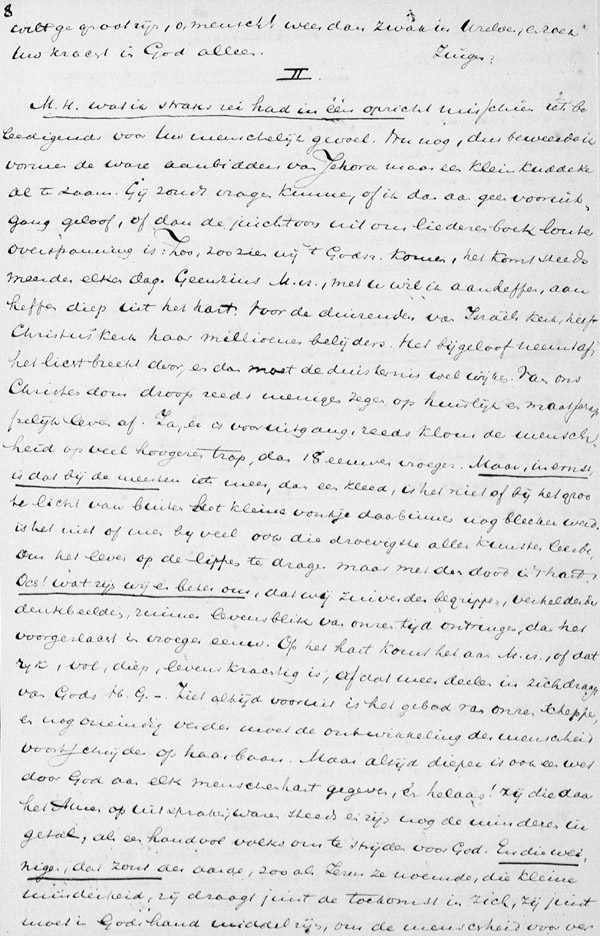 8
wilt ge groot zijn, o, mensch! wees dan zwak in Uzelve, en zoek
Uw kracht in God alleen. Zingen:
II.
M. H. wat ik straks zei had in één opzicht misschien iets be
leedigends voor Uw menschelijk gevoel. Nu nog, dus beweerde ik
vormen de ware aanbidders van Jehova maar een klein kuddeke
al te zaam. Gij zoudt vragen kunnen, of ik dan aan geen vooruit-
gang geloof, of dan de juichtoon uit ons liederenboek louter
overspanning is: Zoo, zoo zien wij 't Godsr. komen, het komt steeds
meerder elken dag. Geenzins M. vr., met U wil ik aandeffen, aan
heffen diep uit het hart. Voor de duizenden van Israëls kerk, heeft
Christus' kerk haar millioenen belijders. Het bijgeloof neemt af,
het licht breekt door, en dan moet de duisternis wel wijken. Van ons
Christendom droop reeds menigen zegen op huislijk en maatschap
pelijk leven af. Ja, er is vooruitgang, reeds klom de mensch-
heid op veel hoogeren trap, dan 18 eeuwen vroeger. Maar, in ernst,
is dat bij de meesten iets meer, dan een kleed, is het niet of bij het groo
te licht van buiten het kleine vonkje daarbinnen nog bleeker werd,
is het niet of men bij veel ook die droevigste aller kunsten leerde,
om het leven op de lippen te dragen maar met den dood in 't hart.
Och! wat zijn wij er beter om, dat wij zuiverder begrippen, verhelderde
denkbeelden, ruimer levensblik van onzen tijd ontvingen, dan het
voorgeslacht in vroeger eeuw. Op het hart komt het aan M. vr., of dat
rijk, vol, diep, levenskrachtig is, of dat meer deelen in zich draagt
van Gods H. G. – Ziet altijd vooruit is het gebod van onzen Schepper,
en nog oneindig verder moet de ontwikkeling der menschheid
voortschrijden op haar baan. Maar altijd dieper is ook een wet
door God aan elk menschenhart gegeven, en helaas! zij die daar
het Amen op uitspraken, waren steeds en zijn nog de minderen in
getal, als een handvol volks om te strijden voor God. En die wei-
nigen, dat zout der aarde, zooals Jezus ze noemde, die kleine
minderheid, zij draagt juist de toekomst in zich, zij juist
moet in Gods hand middel zijn, om de menschheid voor ver